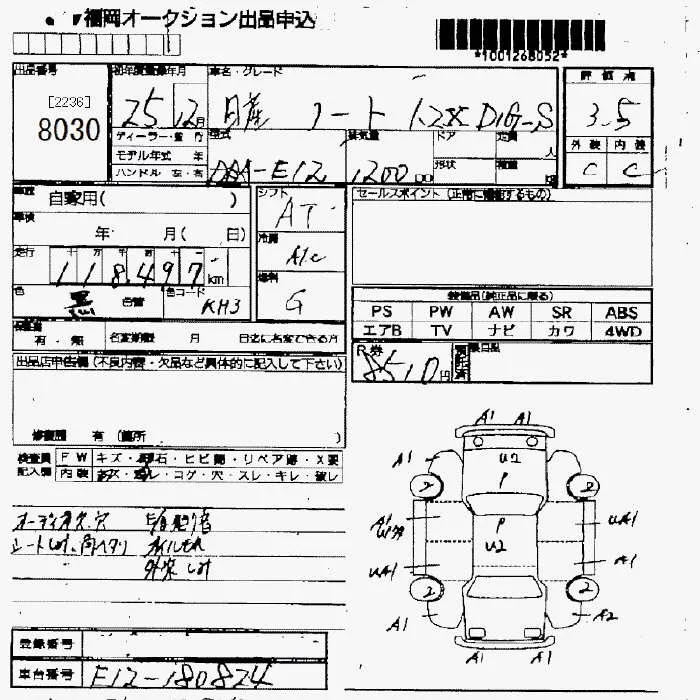 福岡オークション出品申込
*1001268052*
出品番号 初年度登録年月 車名・グレード 評価点
[2236]
8030
25 12月 日産 ノート 1.2X DIG-S 3.5
ディーラー・並行 型式 排気量 ドア 定員 人 外装 内装
モデル年式 年 形状 積量
ハンドル 左・右 DBA-E12 1200 cc C C
車歴 自家用( ) シフト AT セールスポイント(正常に機能するもの)
車検 年 月( 日) 冷房 A/C
走行 十 万 千 百 十 一
118,497 km 燃料 G
色 黒 色替 色コード KH3
装備品(純正品に限る)
PS PW AW SR ABS
エアB TV ナビ カワ 4WD
有・無 名変期限 月 日迄に名変できる月
R券 8510円
出品店申告欄(不良内容・欠品など具体的に記入して下さい)
修復歴 有(箇所 )
検査員 FW キズ・飛石・ヒビ割・リペア跡・X要
記入欄 内装 コゲ・穴・スレ・キレ・破レ
A1 A1
A1 U2
P
2 2
A1 P UA1
U2
UA1 A1
2 2
A1 A2
A1 A1
オイルもれ
登録番号
車台番号 E12-180824